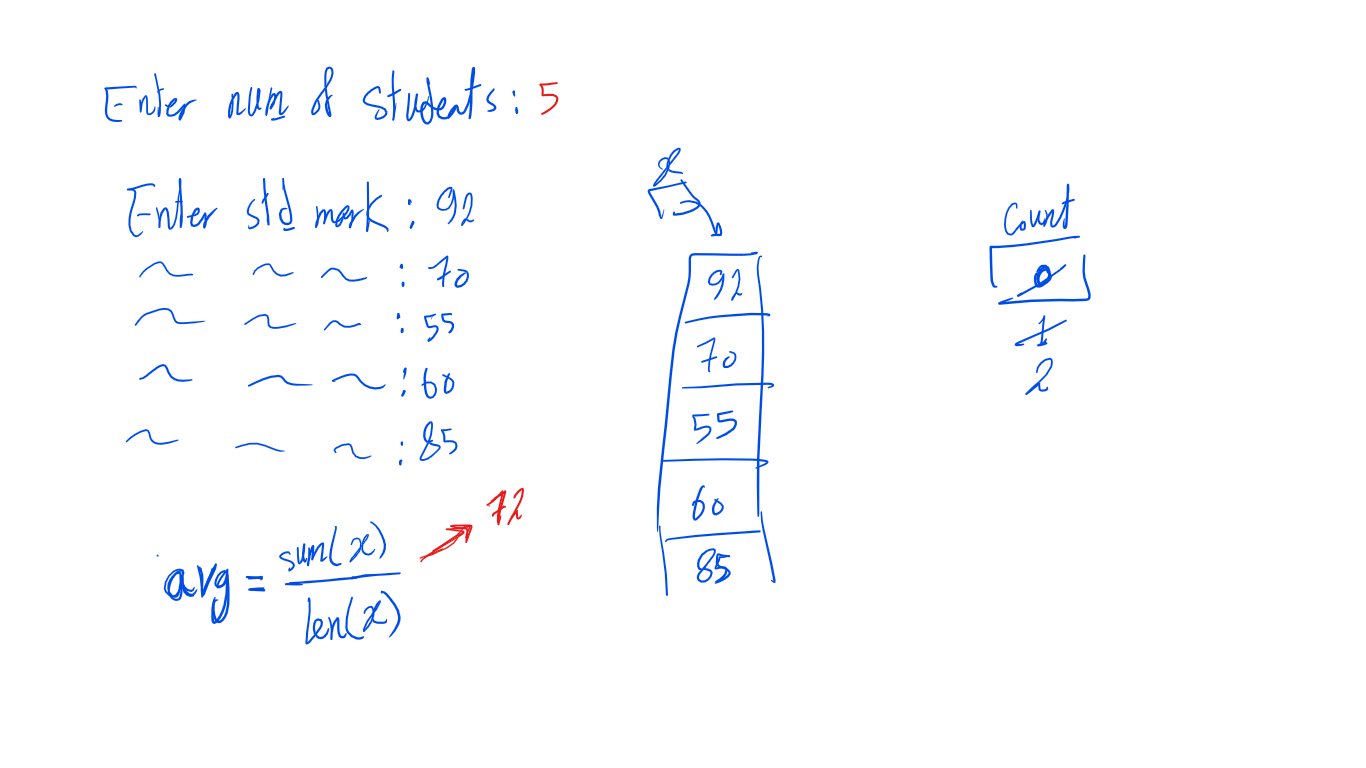 Enter num of students: 5
Enter std mark: 92
~ ~ ~ : 70
~ ~ ~ : 55
~ ~ ~ : 60
~ ~ ~ : 85
avg = sum(x)
len(x)
72
x
92
70
55
60
85
Count
0
1
2